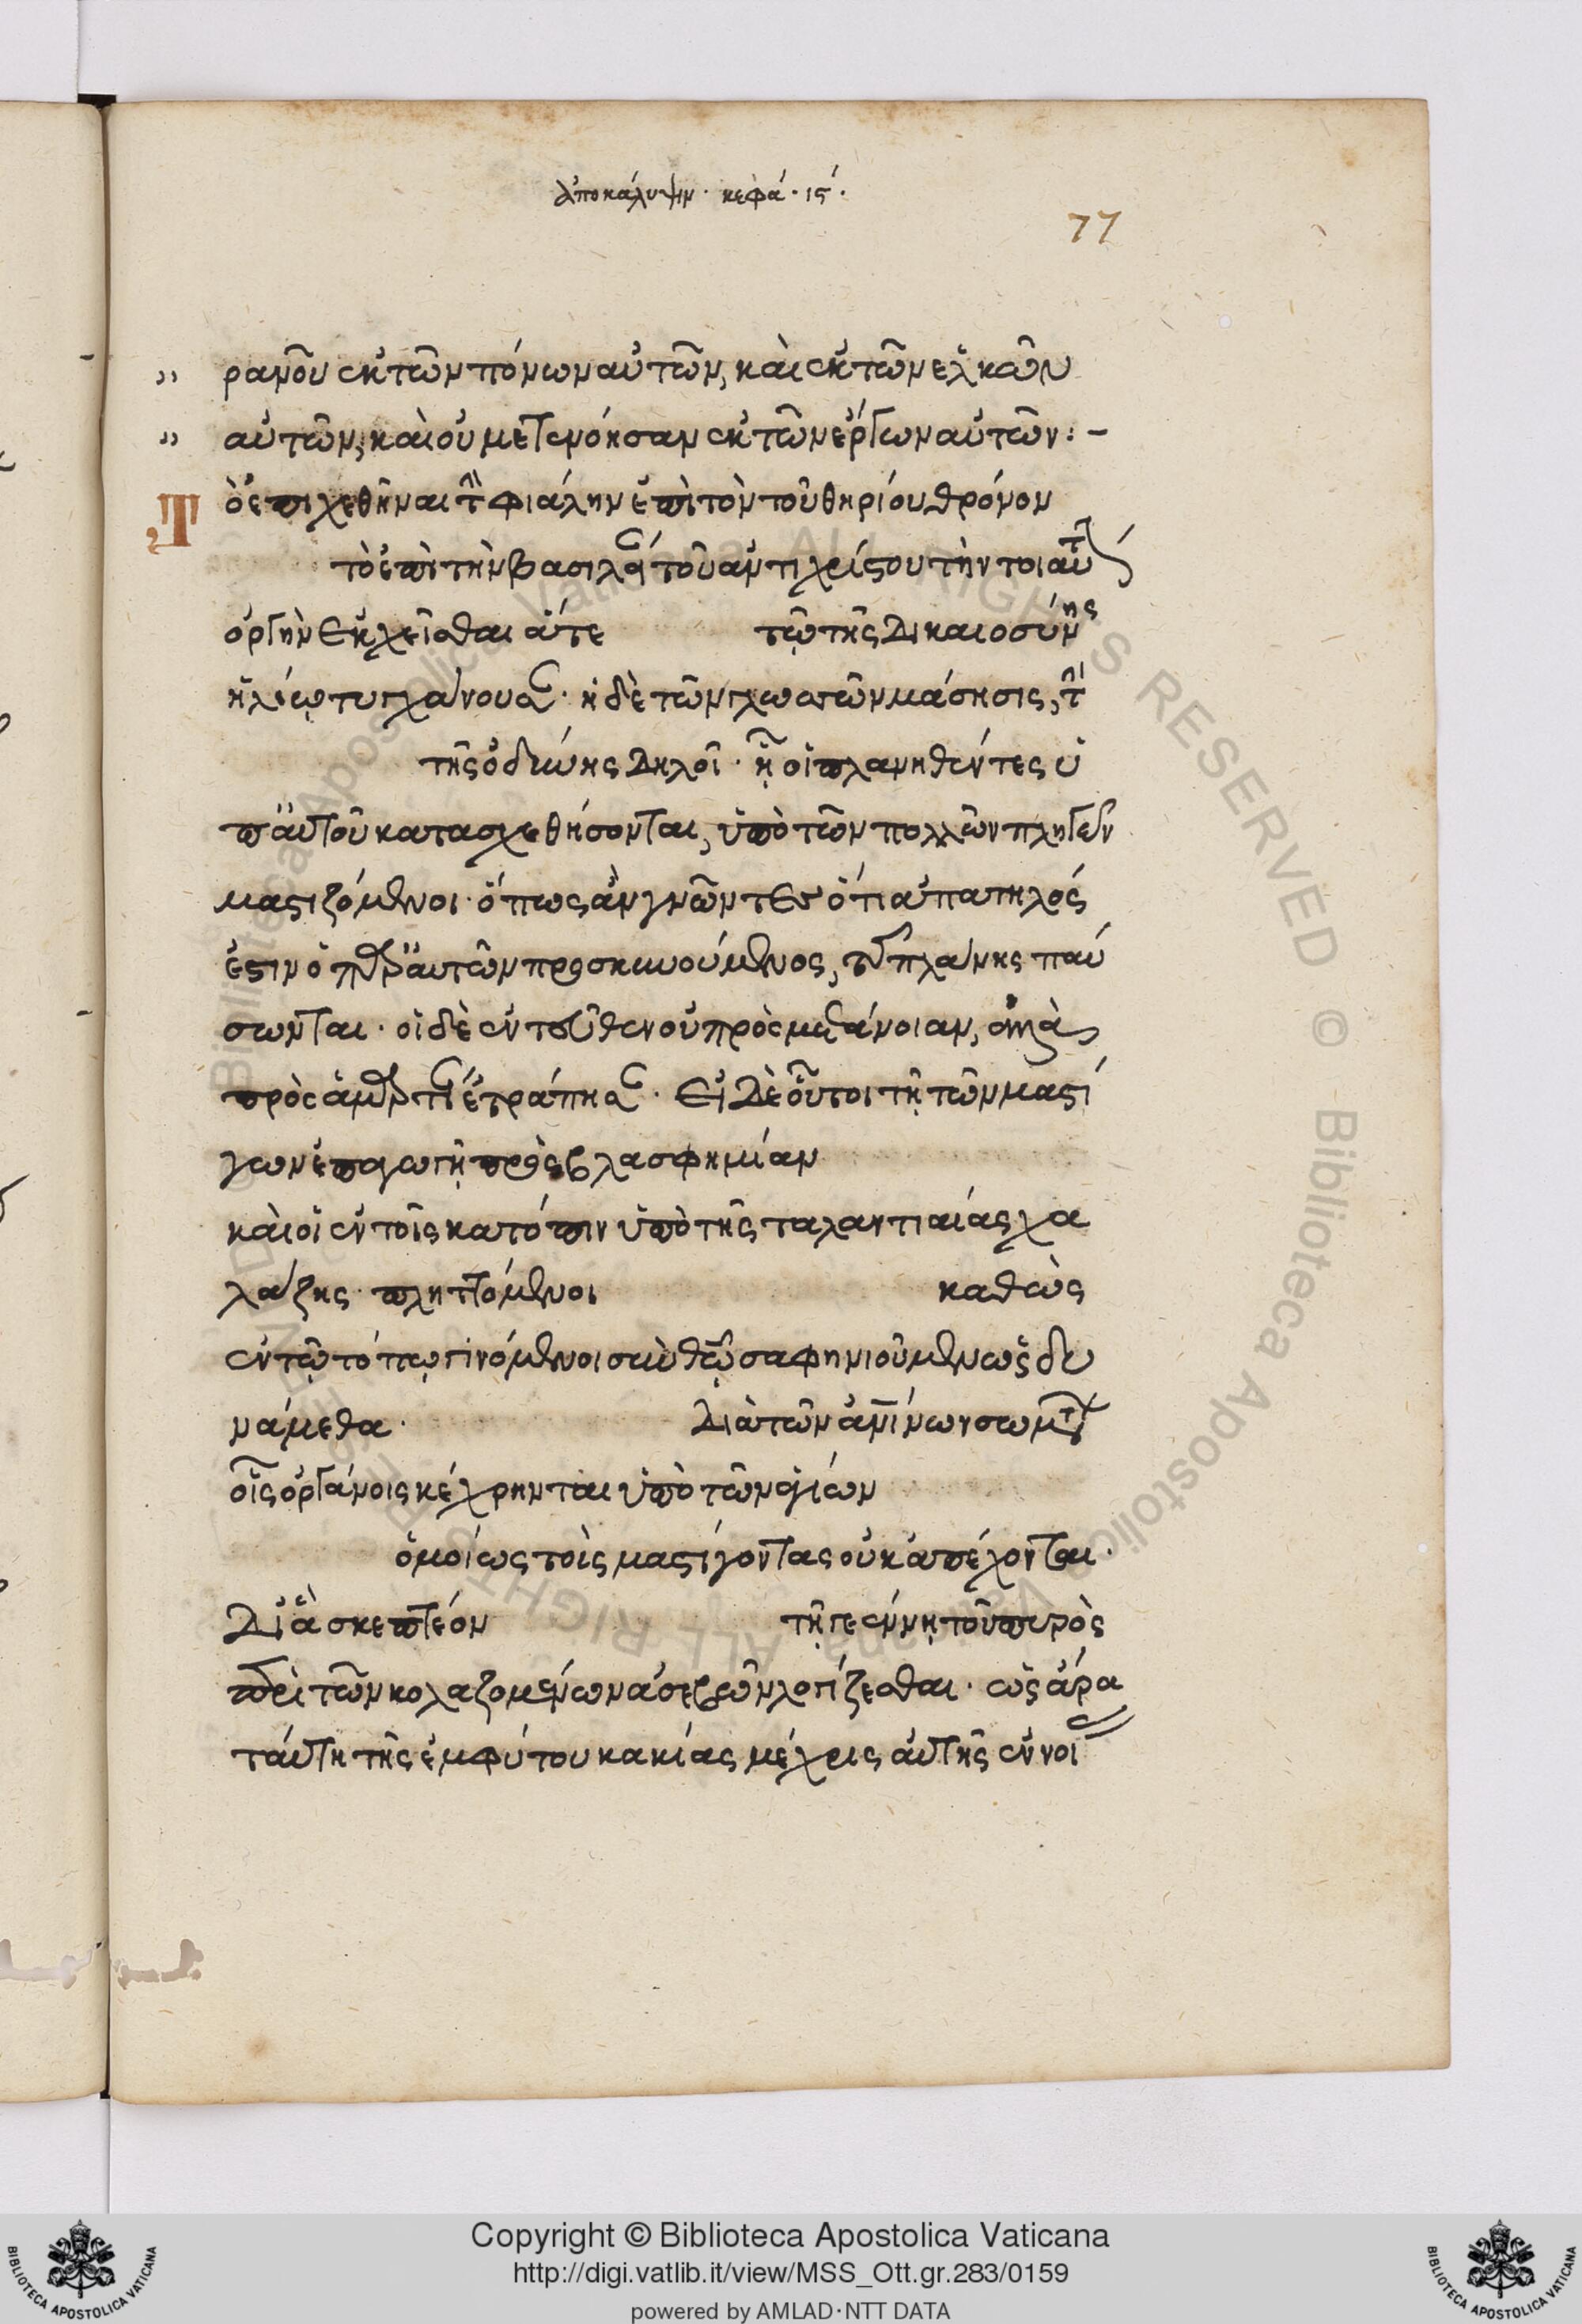 ἀποκάλυψιν · κεφά · ις ·
77
" ρανοῦ ἐκ τῶν πόνων αὐτῶν, καὶ ἐκ τῶν ἑλκῶν
" αὐτῶν, καὶ οὐ μετενόησαν ἐκ τῶν ἔργων αὐτῶν : –
Τ ὸ ἐπιχεθῆναι τὴν φιάλην ἐπὶ τὸν τοῦ θηρίου θρόνον
τὸ ἐπὶ τὴν βασιλείαν τοῦ ἀντιχρίστου τὴν τοιαύτην
ὀργὴν ἐκχεῖσθαι ἅτε τῷ τῆς δικαιοσύνης
ἡλίῳ τυγχάνουσαν · ἡ δὲ τῶν γλωσσῶν μάσησις, τὸ
τῆς ὀδύνης δηλοῖ · ᾗ οἱ πλανηθέντες ὑ
π' αὐτοῦ κατασχεθήσονται, ὑπὸ τῶν πολλῶν πληγῶν
μαστιζόμενοι · ὅπως ἂν γνῶντες ὅτι ἀπατηλός
ἐστιν ὁ παρ' αὐτῶν προσκυνούμενος, τῆς πλάνης παύ
σωνται · οἱ δὲ ἐντεῦθεν οὐ πρὸς μετάνοιαν, ἀλλὰ
πρὸς ἁμαρτίαν ἐτράπησαν · Εἰ δὲ οὗτοι τῇ τῶν μαστί
γων ἐπαγωγῇ πρὸς βλασφημίαν
καὶ οἱ ἐν τοῖς κατόπιν ὑπὸ τῆς ταλαντιαίας χα
λάζης πληττόμενοι καθὼς
ἐν τῷ τόπῳ γινόμενοι σὺν θεῷ σαφηνιοῦμεν ὡς δυ
νάμεθα · διὰ τῶν ἀμείνων σωμάτων
οἷς ὀργάνοις κέχρηνται ὑπὸ τῶν ἁγίων
ὁμοίως τοὶς μαστίγοντας οὐκ ἀπέχονται ·
Δι' ἃ σκεπτέον τῇ γεέννῃ τοῦ πυρὸς
περὶ τῶν κολαζομένων ἀσεβῶν λογίζεσθαι · ὡς ἄρα
ταύτη τῆς ἐμφύτου κακίας μέχρις αὐτῆς ἐννοί
Copyright © Biblioteca Apostolica Vaticana
http://digi.vatlib.it/view/MSS_Ott.gr.283/0159
powered by AMLAD·NTT DATA